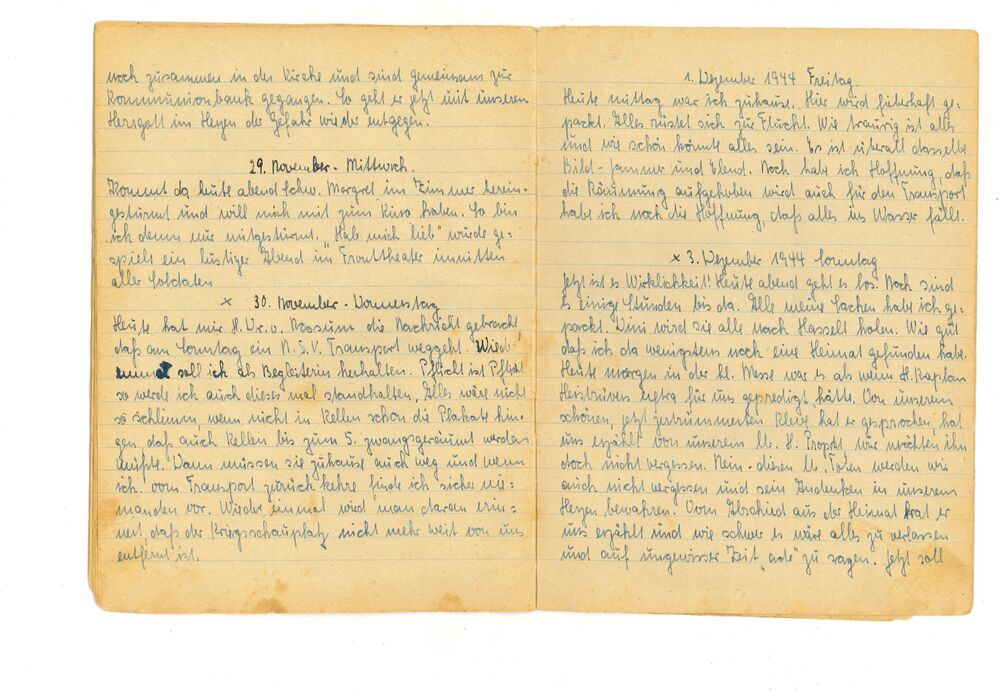 noch zusammen in der Kirche und sind gemeinsam zur
Kommunionbank gegangen. So geht er jetzt mit unseren
Herrgott im Herzen der Gefahr wieder entgegen.
29. November - Mittwoch.
Kommt da heute abend Schw. Margret im Zimmer herein-
gestürmt und will mich mit zum Kino haben. So bin
ich denn nur mitgestürmt. "Hab mich lieb" wurde ge-
spielt ein lustiger Abend im Fronttheater inmitten
aller Soldaten
x 30. November - Donnerstag
Heute hat mir H. Dr. v. die Nachricht gebracht
daß am Sonntag ein N.S.V. Transport weggeht. Wieder
einmal soll ich als Begleiterin herhalten. Pflicht ist Pflicht
so werde ich auch dieses mal standhalten, Alles wäre nicht
so schlimm, wenn nicht in Kellen schon die Plakate hin-
gen daß auch Kellen bis zum 5. zwangsgeräumt werden
müßte. Dann müssen sie zuhause auch weg und wenn
ich vom Transport zurückkehre finde ich sicher nie-
manden vor. Wieder einmal wird man daran erin-
nert daß der Kriegsschauplatz nicht mehr weit von uns
entfernt ist.
1. Dezember 1944 Freitag
Heute mittag war ich zuhause. Hier wird fieberhaft ge-
packt. Alles rüstet sich zur Flucht. Wie traurig ist alles
und wie schön könnte alles sein. Es ist überall dasselbe
Bild - Jammer und Elend. Noch habe ich Hoffnung, daß
die Räumung aufgehoben wird auch für den Transport
habe ich noch die Hoffnung, daß alles ins Wasser fällt.
x 3. Dezember 1944 Sonntag
Jetzt ist es Wirklichkeit! Heute abend geht es los. Noch sind
es einige Stunden bis da. Alle meine Sachen habe ich ge-
packt. wird sie alle nach Hasselt holen. Wie gut
daß ich da wenigstens noch eine Heimat gefunden habe.
Heute morgen in der hl. Messe war es als wenn H. Kaplan
extra für uns gepredigt hätte. Von unserem
schönen, jetzt zertrümmerten Kleve hat er gesprochen, hat
uns erzählt von unserem lb. H. Propst, wir möchten ihn
doch nicht vergessen. Nein - diesen lb. Toten werden wir
auch nicht vergessen und sein Andenken in unserem
Herzen bewahren. Vom Abschied aus der Heimat hat er
uns erzählt und wie schwer es wäre alles zu verlassen
und auf ungewisser Zeit "ade" zu sagen. Jetzt soll